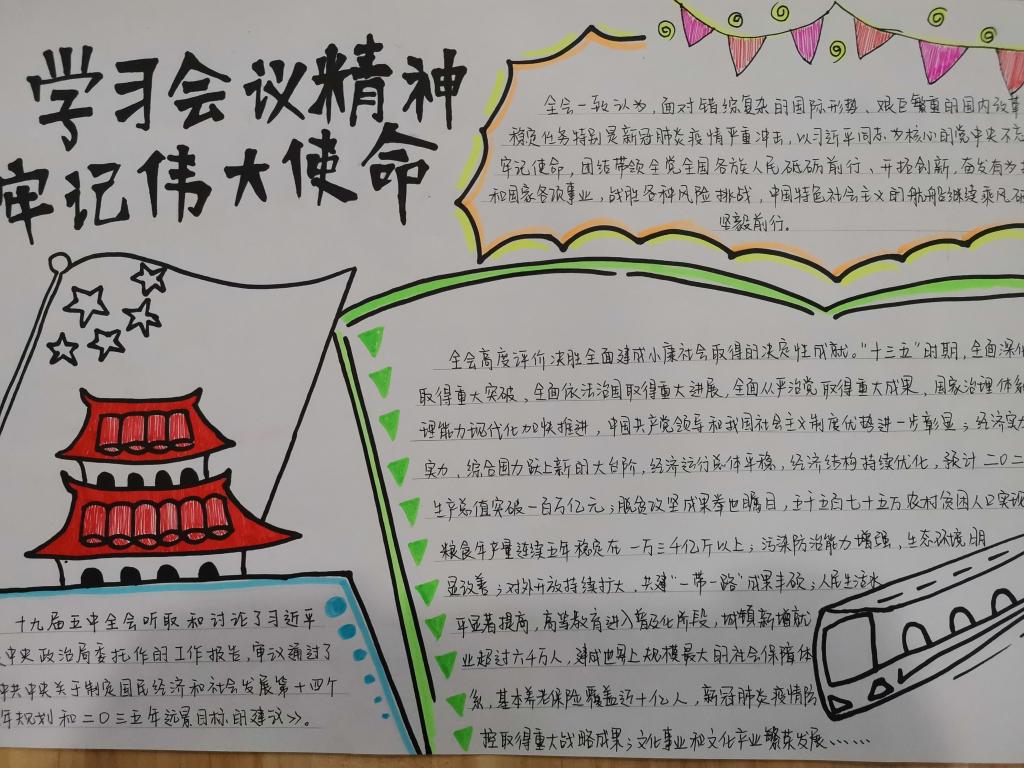 学习会议精神
牢记伟大使命
全会一致认为，面对错综复杂的国际形势、艰巨繁重的国内改革
稳定任务特别是新冠肺炎疫情严重冲击，以习近平同志为核心的党中央不忘
牢记使命，团结带领全党全国各族人民砥砺前行、开拓创新，奋发有为
和国家各项事业，战胜各种风险挑战，中国特色社会主义的航船继续乘风破
坚毅前行。
全会高度评价决胜全面建成小康社会取得的决定性成就。"十三五"时期，全面深化
取得重大突破、全面依法治国取得重大进展，全面从严治党取得重大成果，国家治理体系
理能力现代化加快推进，中国共产党领导和我国社会主义制度优势进一步彰显；经济实力
实力、综合国力跃上新的大台阶，经济运行总体平稳，经济结构持续优化，预计二〇二
生产总值突破一百万亿元；脱贫攻坚成果举世瞩目，五千五百七十五万农村贫困人口实现
粮食年产量连续五年稳定在一万三千亿斤以上；污染防治能力增强，生态环境明
显改善；对外开放持续扩大，共建"一带一路"成果丰硕；人民生活水
平显著提高，高等教育进入普及化阶段，城镇新增就
业超过六千万人，建成世界上规模最大的社会保障体
系，基本养老保险覆盖近十亿人，新冠肺炎疫情防
控取得重大战略成果；文化事业和文化产业繁荣发展……
十九届五中全会听取和讨论了习近平
中央政治局委托作的工作报告，审议通过了
中共中央关于制定国民经济和社会发展第十四个
年规划和二〇三五年远景目标的建议》。